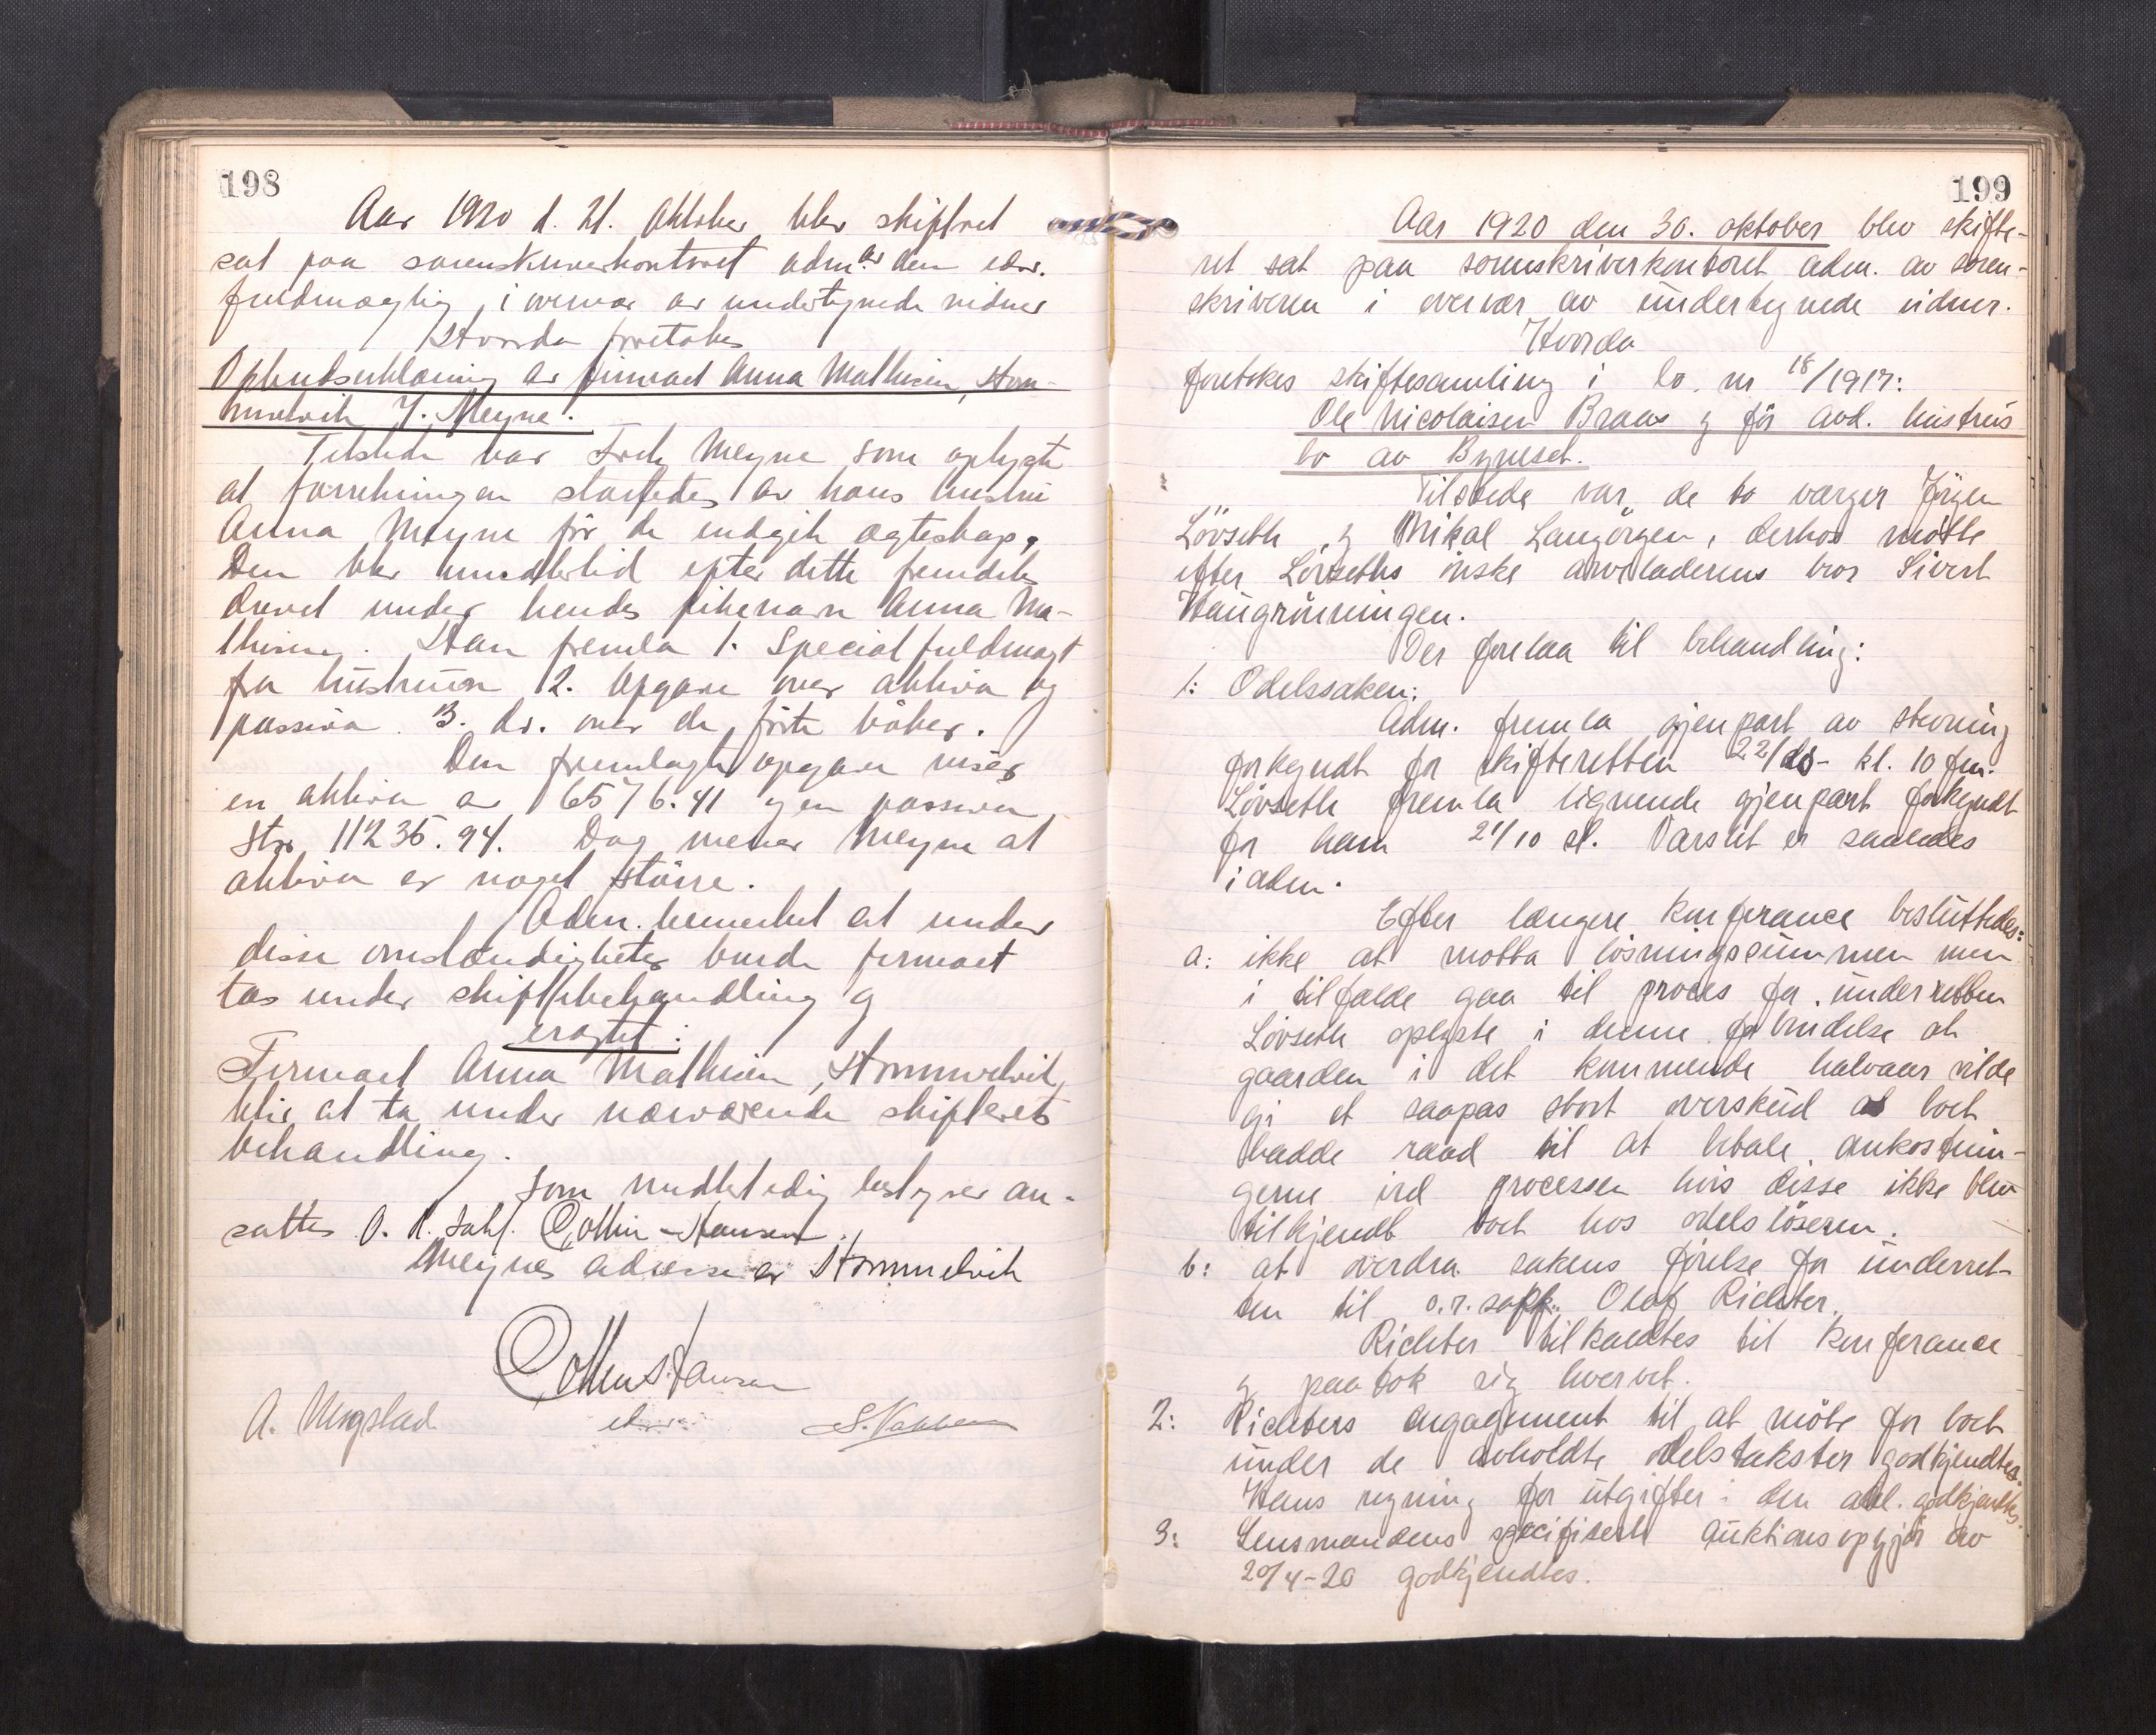 198
Aar 1920 d. 21. Oktober blev skifteret
sat paa sorenskriverkontoret adm. av den edsv.
fuldmægtig, i overvær av undertegnede vidner
Hvorda foretokes
Opbudserklæring av firmaet Anna Mathisen, Hom-
melvik J. Meyne.
Tilstede var Fredr. Meyne som oplyste
at forretningen startedes av hans hustru
Anna Meyne før de indgik egteskap,
Den blev imidlertid efter dette fremdeles
drevet under hendes pikenavn Anna Ma-
thisen. Han fremla 1. Specialfuldmagt
fra hustruen 2. Opgave over aktiva og
passiva 3. do. over de førte bøker.
Den fremlagte opgave viser
en aktiva av 6576.41 og en passiva
stor 11235.94. Dog mener Meyne at
aktiva er noget større.
Adm. bemerket at under
disse omstændigheter burde firmaet
tas under skiftebehandling og
eragtet:
Firmaet Anna Mathisen, Hommelvik,
blir at ta under nærværende skifterets
behandling.
Som midlertidig bestyrer an-
sattes O. R. Sakf. Collin-Hansen.
Meynes adresse er Hommelvik
Collin Hansen
A. Ungstad edsv. S. Vabben
199
Aar 1920 den 30. oktober blev skifte-
ret sat paa sorenskriverkontoret adm. av soren-
skriveren i overvær av undertegnede vidner.
Hvorda
foretokes skiftesamling i bo nr 18/1917:
Ole Nicolaisen Braas og før avd. hustrus
bo av Byneset.
Tilstede var de to værger Jørgen
Lövseth og Mikal Langörgen, derhos mötte
efter Lövseths önske arveladerens bror Sivert
Haugrönningen.
Der forelaa til behandling:
1: Odelssaken:
Adm. fremla gjenpart av stevning
forkyndt for skifteretten 22/ds - kl. 10 fm.
Lövseth fremla lignende gjenpart forkyndt
for ham 21/10 sl. Varslet er saaledes
i aden.
Efter længere konferance besluttedes:
a: ikke at motta lösningssummen men
i tilfælde gaa til proces for underretten
Lövseth oplyste i denne forbindelse at
gaarden i det kommende halvaar vilde
gi et saapas stort overskud at boet
hadde raad til at betale omkostnin-
gerne ved processen hvis disse ikke blev
tilkjendt boet hos odelslöseren.
b: at overdra sakens förelse for underret-
ten til o.r.sakf. Olaf Richter.
Richter tilkaldtes til konferance
og paatok sig hvervet.
2: Richters engagement til at möte for boet
under de avholdte odelstakster godkjendtes.
Hans regning for utgifter i den anl. godkjendtes.
3: Lensmandens specifiserte auktionsopgjör av
20/4-20 godkjendtes.